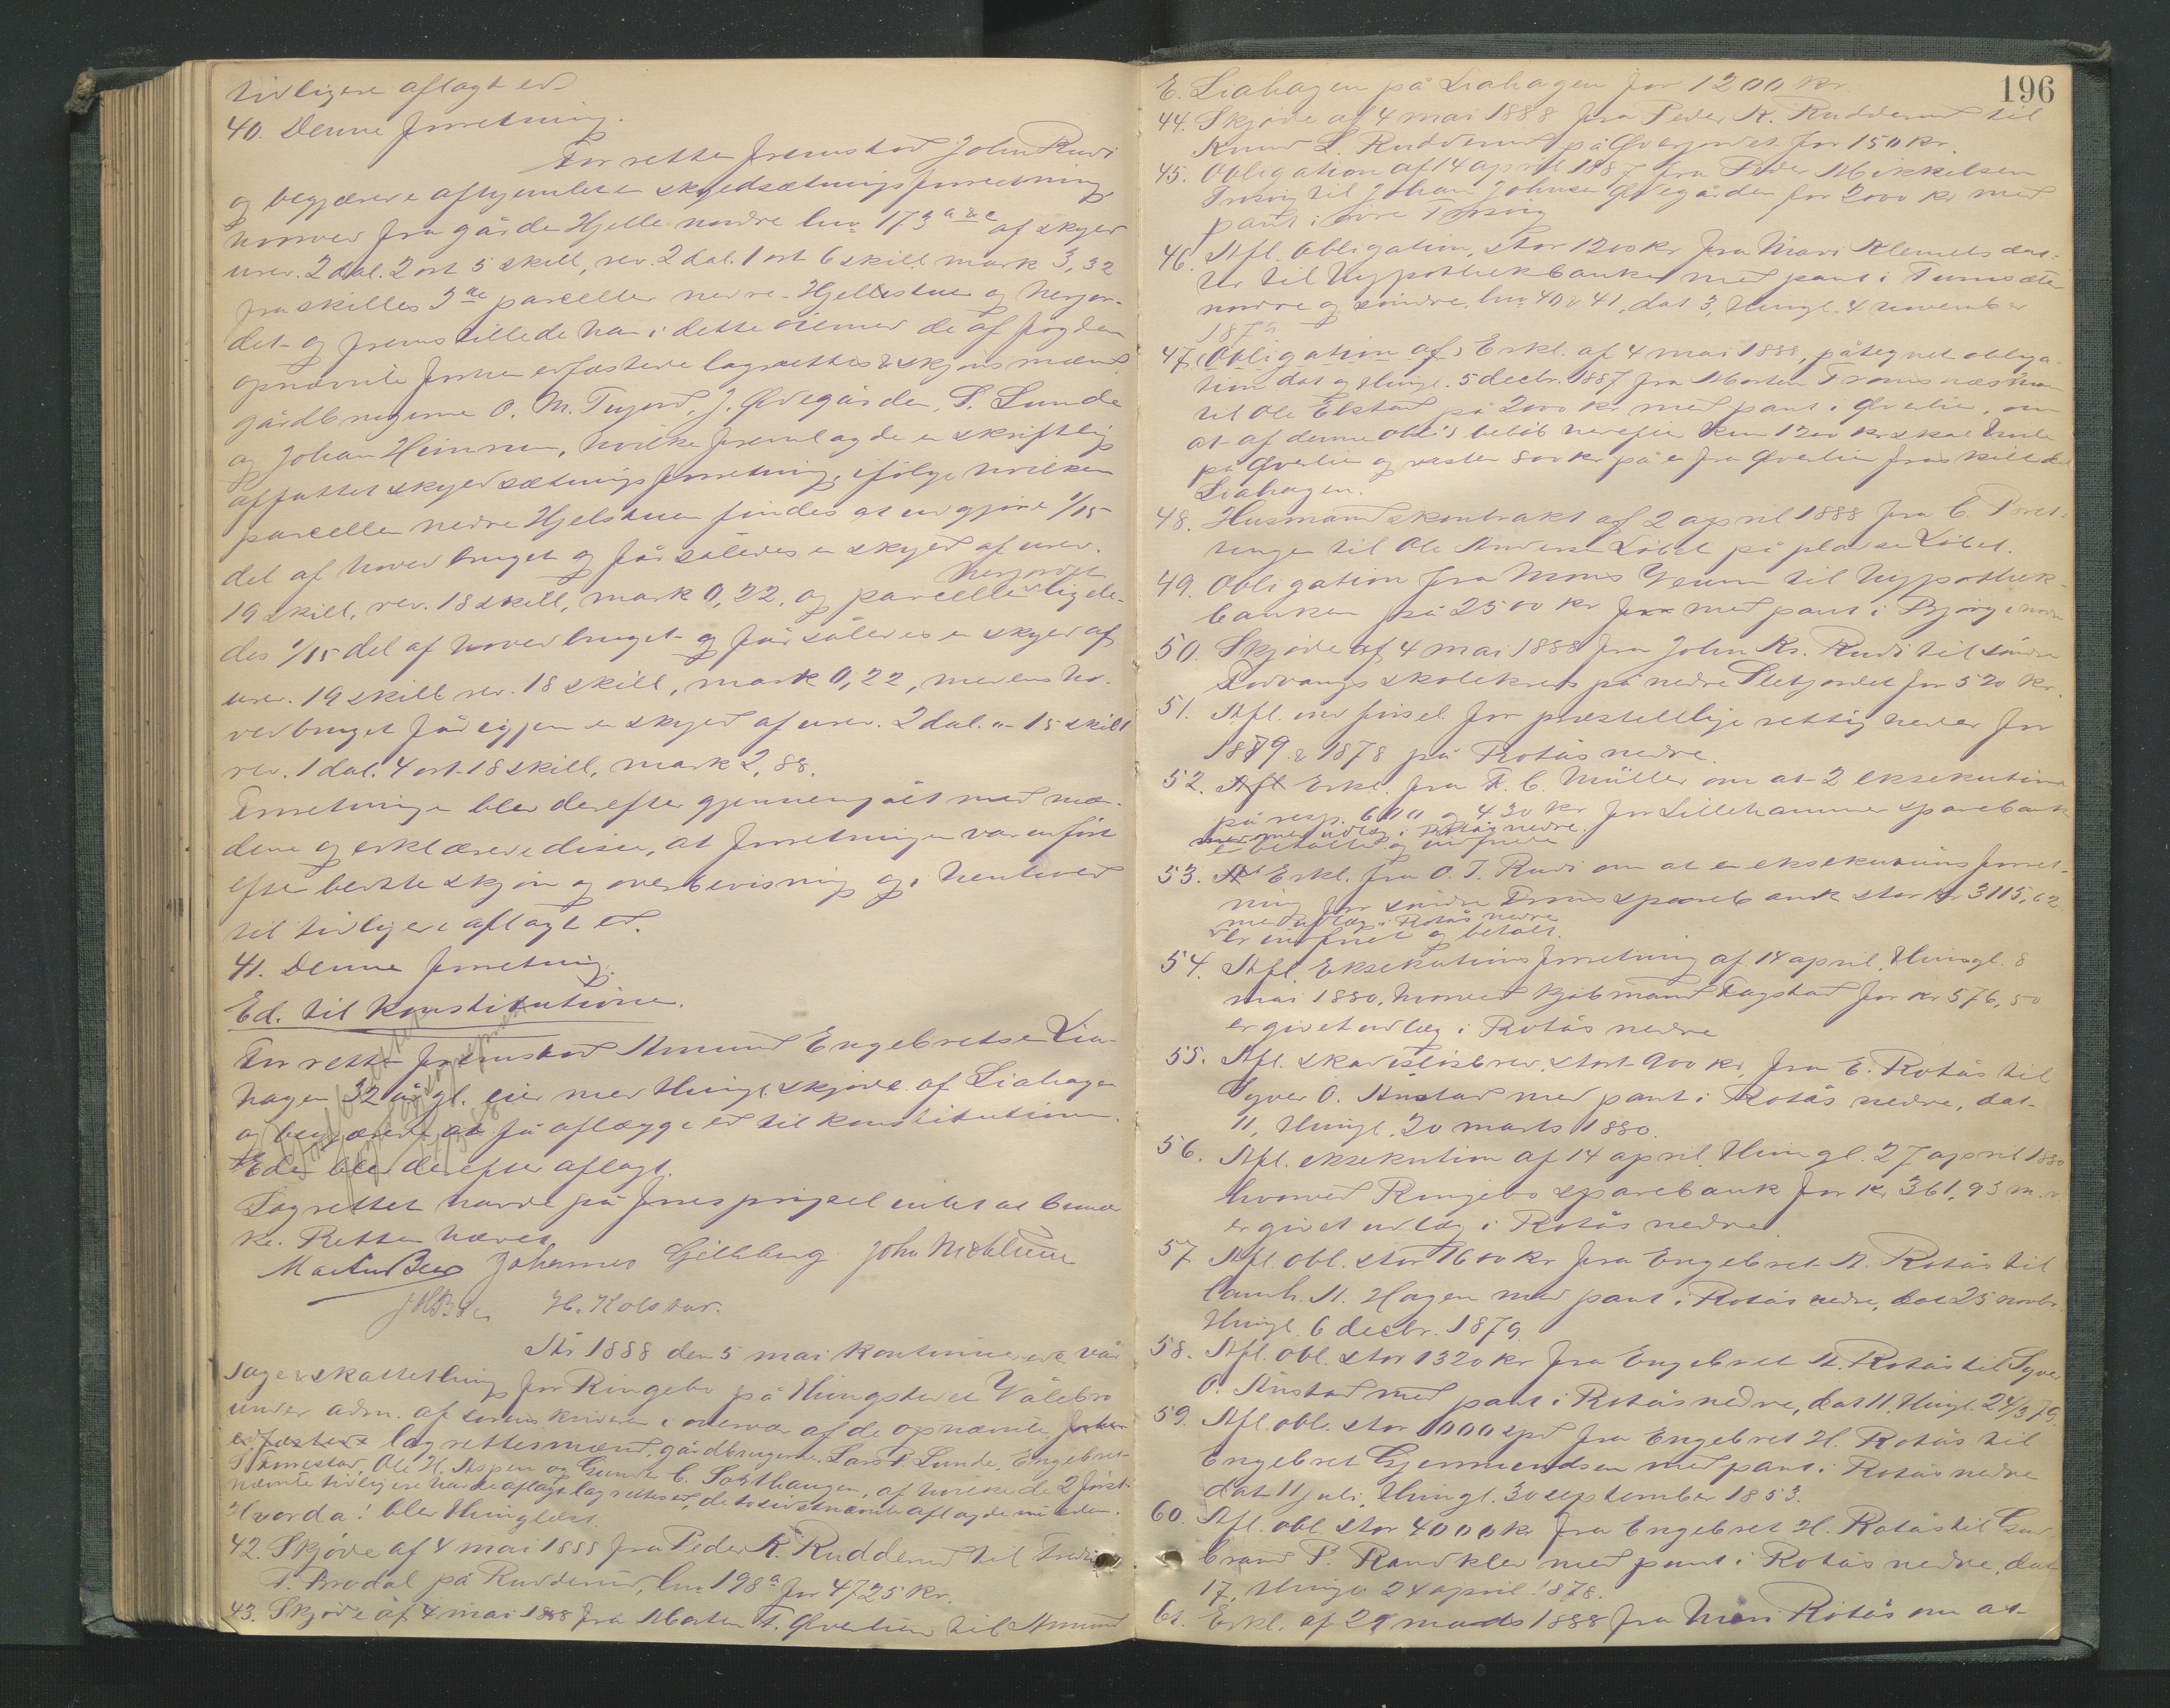 tidligere aflagt ed.
40. Denne forretning.
For retten fremstod John Rudi
og begjærede afhjemlet en skyldsætningsforretning,
hvorved fra gården Hjelle nordre lnr 173 a & c af skyld
urev. 2 dal. 2 ort 5 skill, rev. 2 dal. 1 ort 6 skill mark 3,32
fraskilles 2de parceller nedre Hjellstuen og Nerjor-
det og fremstillede han i dette øiemed de af fogden
opnævnte forhen edfæstede lagrettes & skjønsmænd,
gårdbrugerne O. M. J. Ødegården, S. Lunde
og Johan Heimren, hvilke fremlagde en skriftlig
affattet skyldsætningsforretning, ifølge hvilken
parcellen nedre Hjelstuen findes at udgjøre 1/15
del af hovedbruget og får således en skyld af urev.
19 skill, rev. 18 skill, mark 0,22, og parcellen Nerjordet ligele-
des 1/15 del af hovedbruget og får således en skyld af
urev. 19 skill rev. 18 skill, mark 0,22, medens ho-
vedbruget får igjen en skyld af urev. 2 dal. 15 skill
rev. 1 dal. 4 ort 18 skill, mark 2,88.
Forretningen blev derefter gjennemgået med mæn-
dene og erklærede disse, at forretningen var udført
efter bedste skjøn og overbevisning og i henhold
til tidligere aflagt ed.
41. Denne forretning.
Ed. til konstitutionen.
For retten fremstod Amund Engebretsen Lia-
hagen 32 år gl. eier med thingl. skjøde af Liahagen
og begjærede at få aflægge ed til konstitutionen.
Eden blev derefter aflagt.
Lagrettet havde på forespørgsel intet at bemær-
ke. Retten hævet.
Johannes Gilleberg John
H. Kolstad.
År 1888 den 5 mai kontinuerede vår
sage & skattething for Ringebo på thingstedet Vålebro
under adm. af sorenskriveren i overvær af de opnævnte forhen
edfæstede lagrettesmænd, gårdbrugerne Lars P. Lunde, Engebret
Ole H. Aspen og Gunder C. af hvilke de 2 først-
nævnte tidligere havde aflagt lagrettesed, de to sidstnævnte aflagde nu eden.
Hvorda! blev thinglæst.
42. Skjøde af 4 mai 1888 fra Peder K. Ruddenud til Fredrik
F. Brodal på Rudderud, lnr 198 a for 4725 kr.
43. Skjøde af 4 mai 1888 fra Morten F. Øverlien til Amund
196
E. Liahagen på Liahagen for 1200 kr.
44. Skjøde af 4 mai 1888 fra Peder K. Rudderud til
Knud L. Rudderud på Øverjordet for 150 kr.
45. Obligation af 14 april 1887 fra Peder Mikkelsen
til Johan Johnsen Ødegården for 2000 kr med
pant i øvre
46. Afl. obligation, stor 1200 kr fra Mari Klemetsdat-
ter til hypothekbanken med pant i
nordre og søndre, lnr 40 & 41, dat 3, thingl. 4 november
187
47. Obligation af, Erkl. af 4 mai 1888, påtegnet obliga-
tion dat og thingl. 5 decbr. 1887 fra Morten Tromsnæshaug
til Ole Elstad på 2000 kr med pant i Øverlien, om
at af denne obl's beløb herefter kun 1200 kr skal hvile
på Øverlien og resten 800 kr på en fra Øverlien fraskilt del
Liahagen.
48. Husmandskontrakt af 2 april 1888 fra C.
til Ole Andersen Løbet på pladsen Løbet.
49. Obligation fra Mons Yennn til hypothek-
banken på 2500 kr med pant i Bjørge nordre
50. Skjøde af 4 mai 1888 fra John Kr. Rudi til søndre
skolekreds på nedre Sletjordet for 520 kr.
51. Afl. udpæl for præstelige rettigheder for
1879 & 1878 på Rotås nedre.
52. Afl Erkl. fra F. C. Müller om at 2 eksekutioner
på resp. 600 og 430 kr for Lillehammer sparebank
med udlæg i Rotås nedre
er betalte og indfriede
53. Erkl. fra O. T. Rudi om at en eksekutionsforret-
ning for søndre Frons sparebank stor kr 3115,62
med udlæg i Rotås nedre
er indfriet og betalt.
54. Afl. eksekutionsforretning af 14 april, thingl. 8
mai 1880, hvorved kjøbmand Fagstad for kr 576,50
er givet udlæg i Rotås nedre
55. Afl. skadesløsbrev, stort 900 kr, fra E. Rotås til
Syver O. Anstad med pant i Rotås nedre, dat
11, thingl. 20 marts 1880.
56. Afl. eksekution af 14 april, thingl. 27 april 1880
hvorved Ringebo sparebank for kr 361,93 m.v.
er givet udlæg i Rotås nedre
57 Afl. obl. stor 1600 kr fra Engebret H. Rotås til
Hagen med pant i Rotås nedre, dat 25 novbr.
thingl. 6 decbr. 1879.
58. Afl. obl. stor 1320 kr fra Engebret H. Rotås til Syver
O. Anstad med pant i Rotås nedre, dat 11, thingl. 24/3 79.
59. Afl. obl. stor 1000 spd fra Engebret H. Rotås til
Engebret Gjermundsen med pant i Rotås nedre
dat 11 juli, thingl. 30 september 1853.
60. Afl. obl. stor 4000 kr fra Engebret H. Rotås til Gud-
brand P. Randklev med pant i Rotås nedre, dat
17, thingl. 24 april 1878.
61. Erkl. af 27 marts 1888 fra Mari Rotås om at